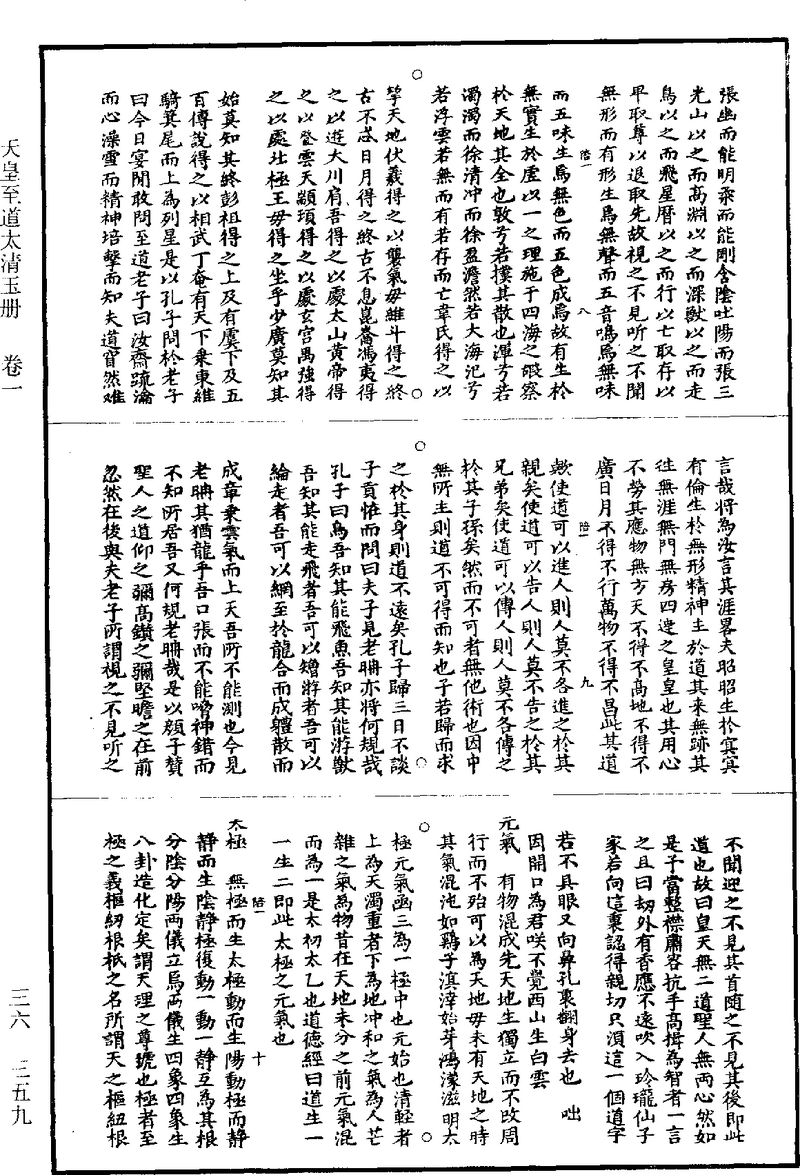 天皇至道太清玉册 卷一
三六—三五九
張幽而能明柔而能剛含陰吐陽而張三
光山以之而高淵以之而深獸以之而走
鳥以之而飛星曆以之而行以亡取存以
卑取尊以退取先故視之不見聽之不聞
無形而有形生焉無聲而五音鳴焉無味
陪一 八
而五味生焉無色而五色成焉故有生於
無實生於虛以一之理施于四海之嘏察
於天地其全也敦兮若樸其散也渾兮若
濁濁而徐清冲而徐盈澹然若大海汜兮
若浮雲若無而有若存而亡韋氏得之以
挈天地伏羲得之以襲氣母維斗得之終
古不忒日月得之終古不息崑崙馮夷得
之以遊大川肩吾得之以處太山黃帝得
之以登雲天顓頊得之以處玄宮禺強得
之以處北極王母得之坐乎少廣莫知其
始莫知其終彭祖得之上及有虞下及五
百傅說得之以相武丁奄有天下乗東維
騎箕尾而上為列星是以孔子問於老子
曰今日宴閒敢問至道老子曰汝齋疏瀹
而心澡雪而精神掊擊而知夫道窅然难
言哉將為汝言其涯畧夫昭昭生於冥冥
有倫生於無形精神主於道其來無跡其
往無涯無門無房四達之皇皇也其用心
不勞其應物無方天不得不高地不得不
廣日月不得不行萬物不得不昌此其道
陪一 九
歟使道可以進人則人莫不各進之於其
親矣使道可以告人則人莫不告之於其
兄弟矣使道可以傳人則人莫不各傳之
於其子孫矣然而不可者無他術也因中
無所主則道不可得而知也子若歸而求
之於其身則道不遠矣孔子歸三日不談
子貢怪而問曰夫子見老聃亦將何規哉
孔子曰鳥吾知其能飛魚吾知其能游獸
吾知其能走飛者吾可以矰游者吾可以
綸走者吾可以網至於龍合而成體散而
成章乗雲氣而上天吾所不能測也今見
老聃其猶龍乎吾口張而不能噏神錯而
不知所居吾又何規老聃哉是以顏子贊
聖人之道仰之彌高鑽之彌堅瞻之在前
忽然在後與夫老子所謂視之不見聽之
不聞迎之不見其首隨之不見其後即此
道也故曰皇天無二道聖人無兩心然如
是于當整襟肅容抗手高揖為智者一言
之且曰刼外有香應不遠吹入玲瓏仙子
家若向這裏認得親切只須這一個道字
若不具眼又向鼻孔裏翻身去也 咄
因開口為君咲不覺西山生白雲
元氣 有物混成先天地生獨立而不改周
行而不殆可以為天地母未有天地之時
其氣混沌如鷄子溟涬始芽鴻濛滋萌太
極元氣函三為一極中也元始也清輕者
上為天濁重者下為地冲和之氣為人芒
雜之氣為物昔在天地未分之前元氣混
而為一是太初太乙也道德經曰道生一
一生二即此太極之元氣也
陪一 十
太極 無極而生太極動而生陽動極而靜
靜而生陰靜極復動一動一靜互為其根
分陰分陽兩儀立焉兩儀生四象四象生
八卦造化定矣謂天理之尊號也極者至
極之義樞紐根柢之名所謂天之樞紐根